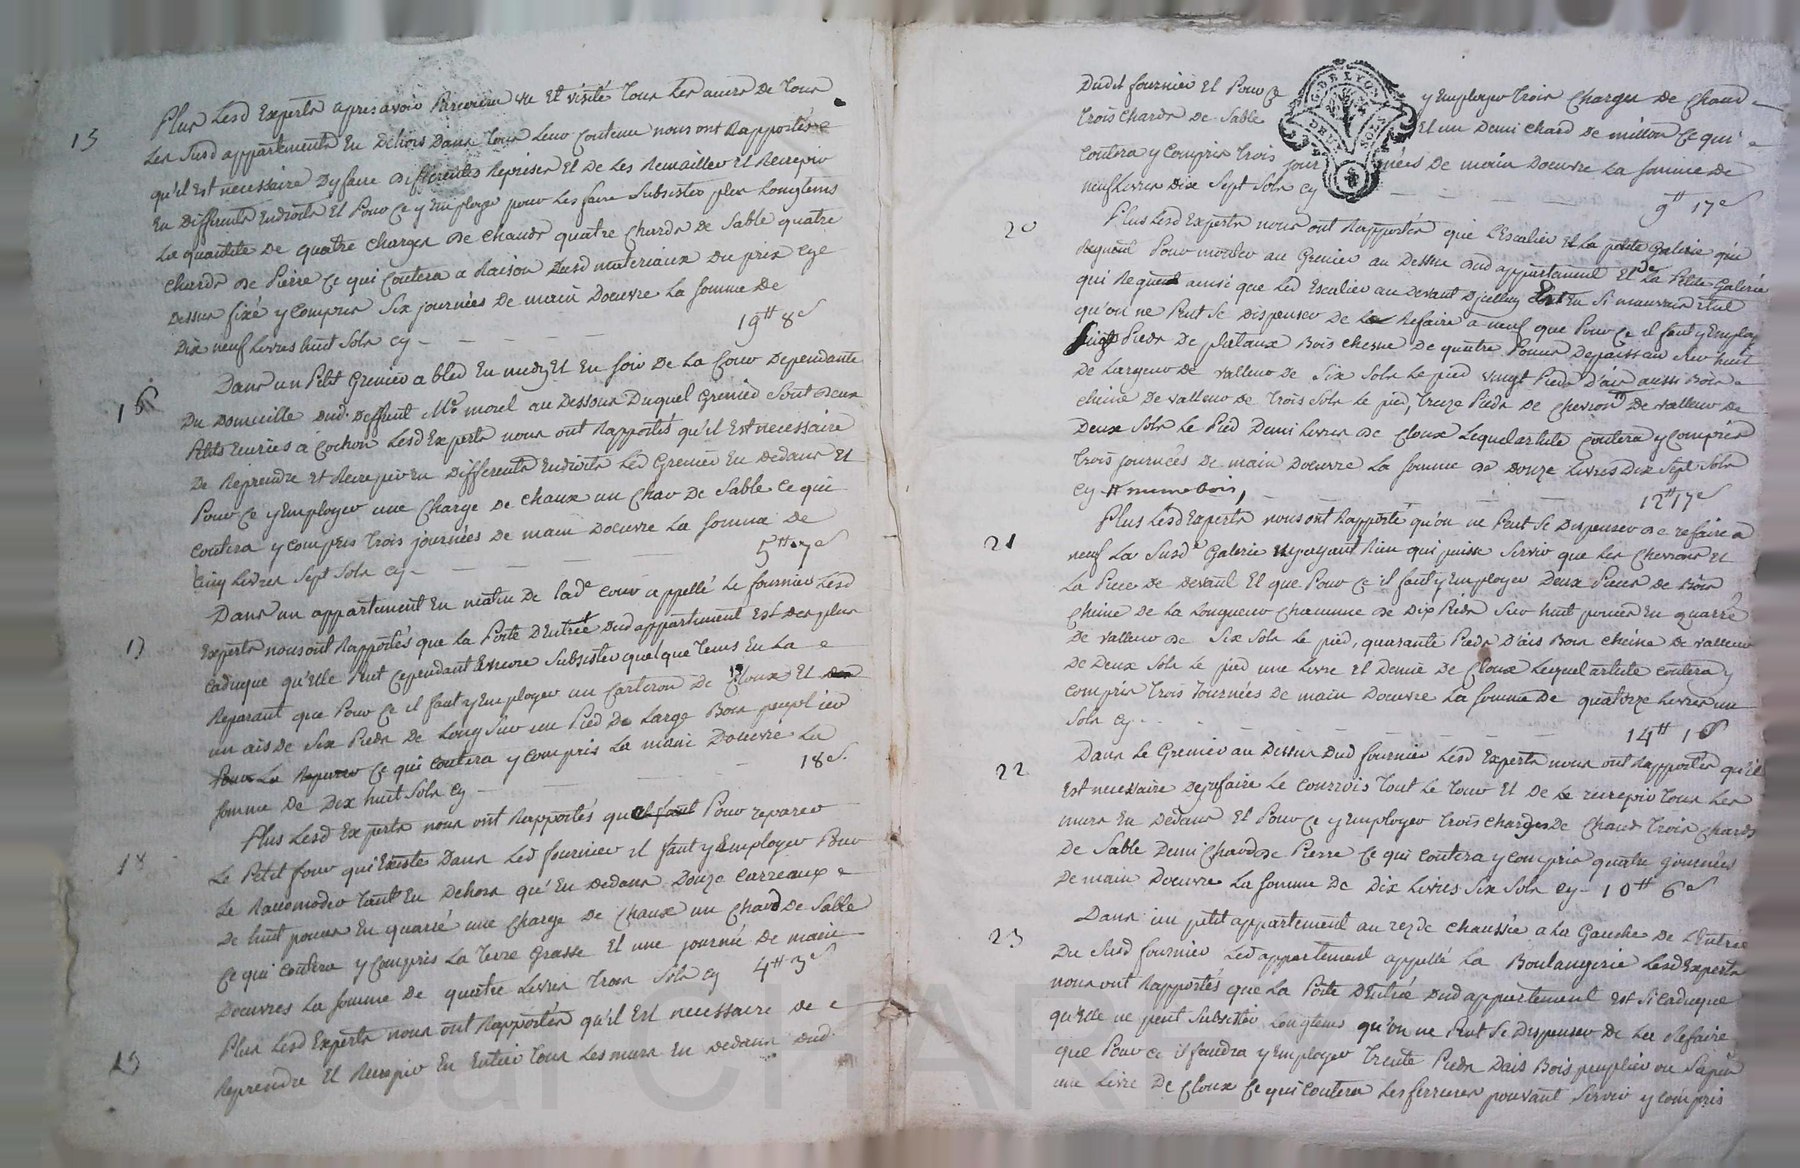 15
Plus Lesd Experts apres avoir vu Et visité Tous Les murs De Tous
Les Susd appartements En Dehors Dans Tous Leur Contenu nous ont Rapportés
qu'il Est necessaire Dy faire Differentes Reprises Et De Les Remailler Et Recrepir
En Differents Endroits Et Pour Ce y Employer pour Les faire Subsister plus Longtems
La quantité De quatre Charges De Chaud quatre Chards De Sable quatre
Chards De Pierre Ce qui Coutera a Raison Dusd materiaux Du prix Cy
Dessus fixé y Compris Six journées De main Doeuvre La Somme De
Dix neuf Livres huit Sols Cy - 19ᵗᵗ 8ˢ
16
Dans un Petit Grenier a bled En Et En Soir De La Cour Dependante
Du Domicille Dud. Deffunt Mᵉ morel au Dessous Duquel Grenier Sont Deux
Petits Ecuries a Cochons Lesd Experts nous ont Rapportés qu'il Est necessaire
De Reprendre Et Recrepir En Differents Endroits Led Grenier En Dedans Et
Pour Ce y Employer une Charge De Chaux un Char De Sable Ce qui
Coutera y Compris Trois journées De main Doeuvre La Somme De
Cinq Livres Sept Sols Cy - 5ᵗᵗ 7ˢ
17
Dans un appartement En matin De Ladᵉ Cour appellé Le fournier Lesd
Experts nous ont Rapportés que La Porte D'Entrée Dud appartement Est Des plus
Caduque qu'Elle Peut Cependant Encore Subsister quelque Tems En La
Reparant que Pour Ce il faut y Employer un Carteron De Cloux Et
un ais De Six Pieds De Long Sur un Pied De Large Bois peuplier
Pour La Reparer Ce qui Coutera y Compris La main Doeuvre La
Somme De Dix huit Sols Cy - 18ˢ.
18
Plus Lesd Experts nous ont Rapportés qu'il faut Pour reparer
Le Petit four qui Existe Dans Led fournier il faut y Employer Pour
Le Racomoder Tant En Dehors qu'En Dedans Douze Carreaux
De huit pouces En quarré une Charge De Chaux un Chard De Sable
Ce qui Coutera y Compris La Terre Grasse Et une journée De main
Doeuvres La Somme De quatre Livres Trois Sols Cy 4ᵗᵗ 3ˢ
19
Plus Lesd Experts nous ont Rapportés qu'il Est necessaire De
Reprendre Et Recrepir En Entier Tous Les murs En Dedans Dud.
Dudit fournier Et Pour Ce y Employer Trois Charges De Chaud
Trois Chards De Sable Et un Demi Chard De Ce qui
Coutera y Compris Trois journées De main Doeuvre La Somme De
neuf Livres Dix Sept Sols Cy - 9ᵗᵗ 17ˢ
G. DE LYON
DEUX SOLS
20
Plus Lesd Experts nous ont Rapportés que L'Escalier Et La petite Galerie qui
Pour monter au Grenier au Dessus Dud appartement Et De La Petite Galerie
qui Regne ainsi que Led Escalier au Devant Djcelluy Est En Si mauvais Etat
qu'on ne Peut Se Dispenser De Le Refaire a neuf que Pour Ce il faut y Employer
Pieds De Bois Chesne De quatre Pouces Depaisseur Sur huit
De Largeur De Valleur De Six Sols Le pied Vingt Pieds D'ais aussi Bois
Chêine De Valleur De Trois Sols Le pied, Treize Pieds De Chevrons De Valleur De
Deux Sols Le Pied Demi Livres De Cloux Lequel article Coutera y Compris
Trois journées De main Doeuvre La Somme De Douze Livres Dix Sept Sols
Cy # meme bois, - 12ᵗᵗ 17ˢ
21
Plus Lesd Experts nous ont Rapporté qu'on ne Peut Se Dispenser De refaire a
neuf La Susdᵉ Galerie n'y ayant Rien qui puisse Servir que Les Chevrons Et
La Piece De Devant Et que Pour Ce il faut y Employer Deux Pieces De Bois
Chêine De La Longueur Chacunne De Dix Pieds Sur huit pouces En quarré
De Valleur De Six Sols Le pied, quarante Pieds D'ais Bois Cheine De Valleur
De Deux Sols Le pied une Livre Et Demie De Cloux Lequel article Coutera y
Compris Trois Journées De main Doeuvre La Somme De quatorze Livres un
Sols Cy - 14ᵗᵗ 1ˢ
22
Dans Le Grenier au Dessus Dud fournier Lesd Experts nous ont Rapportés qu'il
Est necessaire De refaire Le Courrois Tout Le Tour Et De Le recrepir Tous Les
murs En Dedans Et Pour Ce y Employer Trois Charges De Chaux Trois Chards
De Sable Demi Chard De Pierre Ce qui Coutera y Compris quatre journées
De main Doeuvre La Somme De Dix Livres Six Sols Cy - 10ᵗᵗ 6ˢ
23
Dans un petit appartement au rez De Chaussée a La Gauche De L'Entrée
Du Susd fournier Led appartement appellé La Boulangerie Lesd Experts
nous ont Rapportés que La Porte D'Entrée Dud appartement Est Si Caduque
qu'Elle ne peut Subsister Longtems qu'on ne Peut Se Dispenser De La Refaire
que Pour Ce il faudra y Employer Trente Pieds Dais Bois peuplier ou Sapin
une Livre De Cloux Ce qui Coutera Les ferrures pouvant Servir y Compris